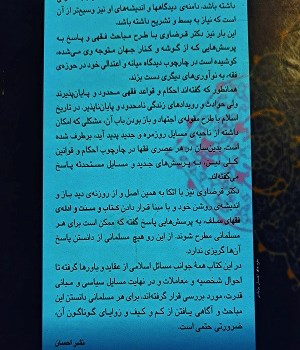 داشته باشد. دامنه‌ی دیدگاهها و اندیشه‌های او نیز وسیع‌تر از آن
است که نیاز به بسط و تشریح داشته باشد.
این بار نیز دکتر قرضاوی با طرح مباحث فقهی و پاسخ به
پرسش‌هایی که از گوشه و کنار جهان متوجه وی می‌شده،
کوشیده است در چارچوب دیدگاه میانه و اعتدالی خود در حوزه‌ی
فقه، به نوآوری‌های دیگری دست بزند.
همانطور که گفته‌اند احکام و قواعد فقهی محدود و پایان‌پذیرند
ولی حوادث و رویدادهای زندگی نامحدود و پایان‌ناپذیر. در تاریخ
اسلام با طرح مقوله‌ی اجتهاد و باز بودن باب آن، مشکلی که امکان
داشته از ناحیه‌ی مسایل روزمره و جدید پدید آید، برطرف شده
است. بدین‌سان در هر عصری فقها در چارچوب احکام و قوانین
کلی دین، به پرسش‌های جدید و مسایل مستحدثه پاسخ
می‌گفته‌اند.
دکتر قرضاوی نیز با اتکا به همین اصل و از روزنه‌ی دید باز و
اندیشه‌ی روشن خود و با مبنا قرار دادن کتاب و سنت و ادله‌ی
فقهای سلف، به پرسش‌هایی پاسخ گفته که ممکن است برای هر
مسلمانی مطرح شوند. از این رو هیچ مسلمانی از دانستن پاسخ
آن‌ها گریزی ندارد.
در این کتاب همه جوانب مسائل اسلامی از عقاید و باورها گرفته تا
احوال شخصیه و معاملات و در نهایت مسایل سیاسی و مبانی
قدرت، مورد بررسی قرار گرفته‌اند. برای هر مسلمانی دانستن این
مباحث و آگاهی یافتن از کم و کیف و زوایای گوناگون آن،
ضرورتی حتمی است.
نشر احسان